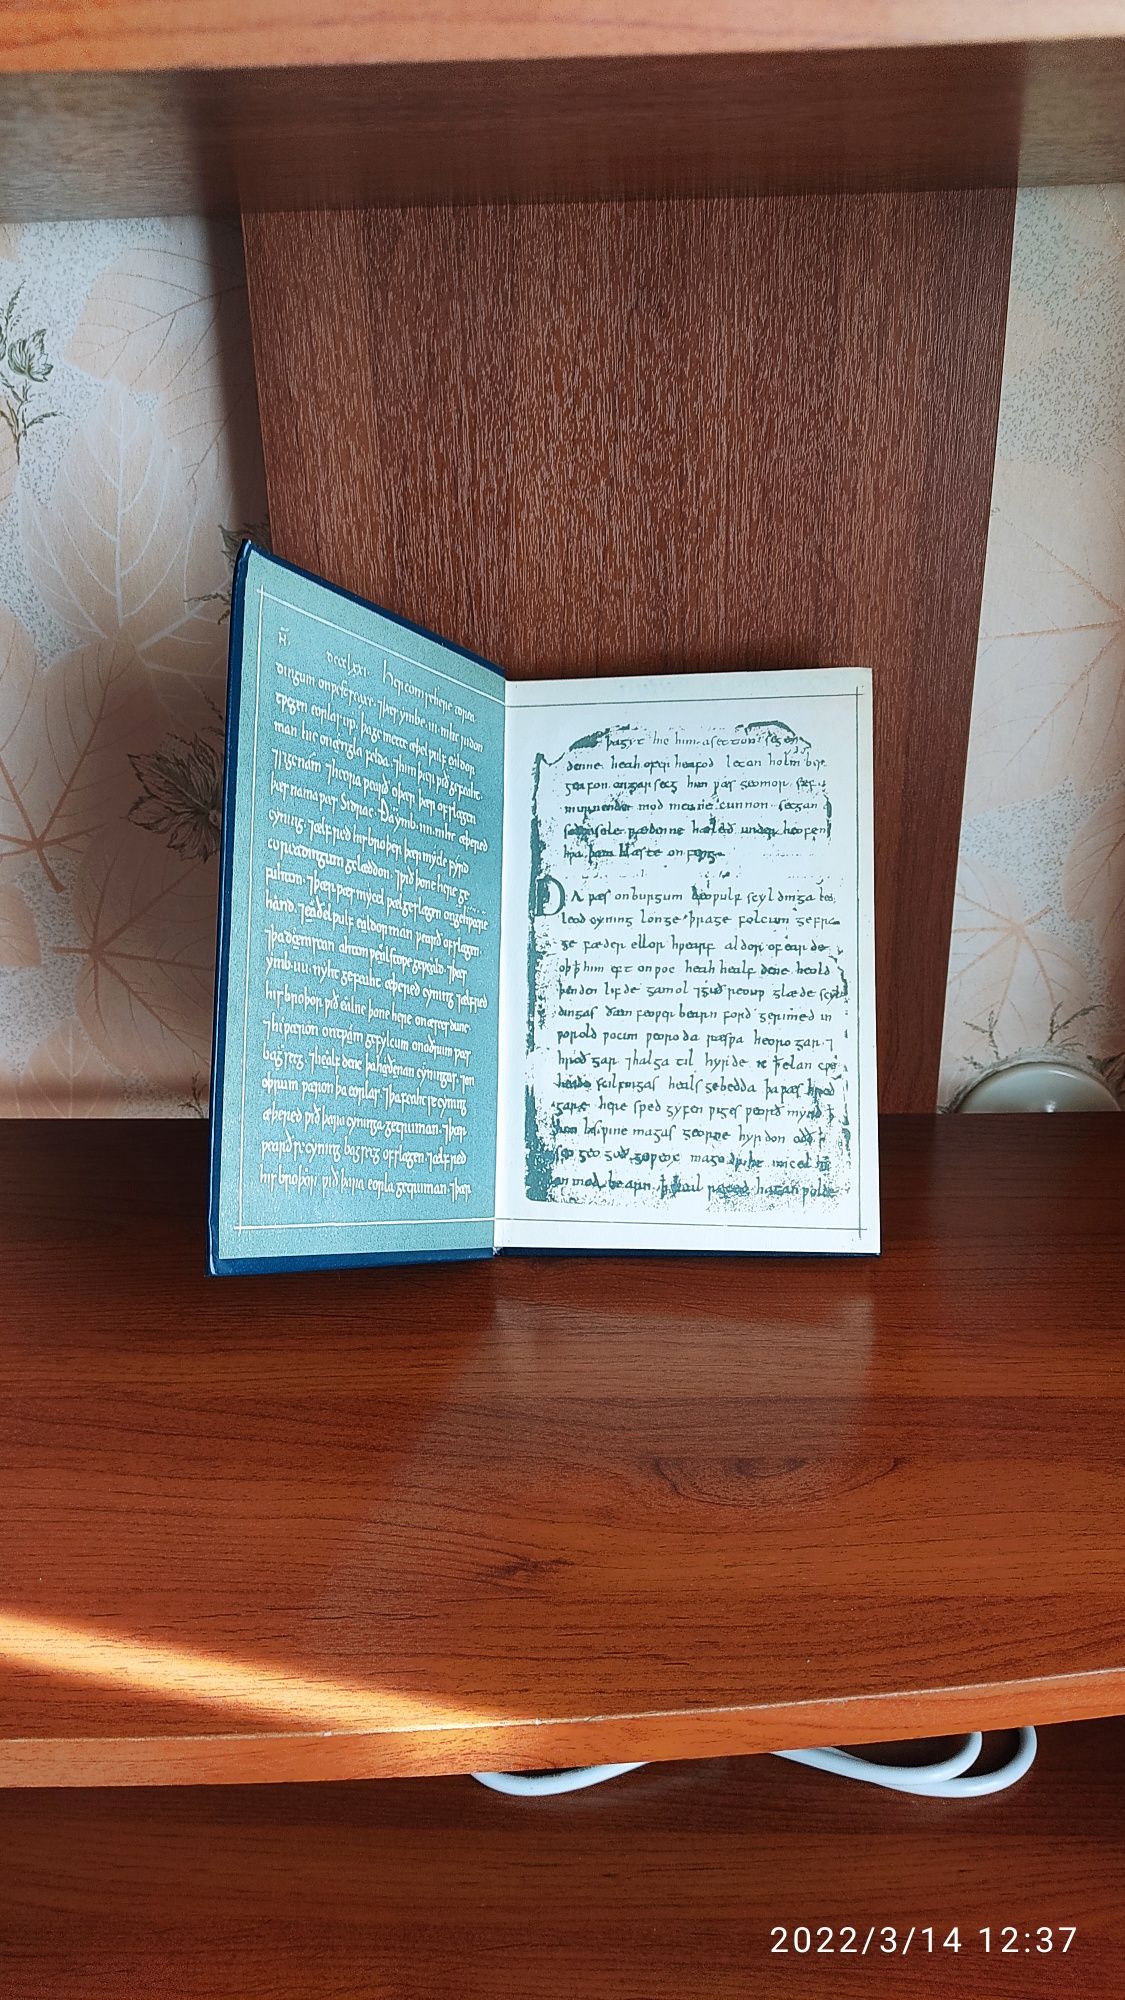 dccclxxi. Her com se here to rea
dingum on ƿestseaxe. ⁊þæs ymbe .iii. niht ridon
.ii. eorlas up. þa ge mette æþelƿulf ealdor
man hie on engla felda. ⁊him þær ƿið gefeaht.
⁊sige nam. ⁊heora ƿearð oþer þær of slægen
þæs nama ƿæs Sidrac. Ða ymb .iiii. niht æþered
cyning. ⁊ælfred his broþer þær mycle fyrd
to readingum gelæddon. ⁊ƿið þone here ge
fuhton. ⁊þær ƿæs mycel ƿæl geslægen on gehƿæþre
hand. ⁊eaðelƿulf ealdorman ƿearð ofslægen.
⁊þa deniscan ahton ƿælstoƿe geƿeald. ⁊þæs
ymb .iiii. nyht gefeaht æþered cyning ⁊ælfred
his broþor ƿið ealne þone here on æscesdune.
⁊hi ƿæron on tƿam gefylcum on oðrum ƿæs
bagsecg. ⁊healfdene þa hæðenan cyningas. ⁊on
oþrum ƿæron þa eorlas. ⁊þa feaht se cyning
æþered ƿið þara cyninga getruman. ⁊þær
ƿearð se cyning bagsecg ofslægen. ⁊ælfred
his broþor, ƿið þara eorla getruman. ⁊þær
þa gyt hie him asetton segen
denne heah ofer heafod leton holm ber
geafon on garsecg him ƿæs geomor sefa
murnende mod men ne cunnon secgan
sele rædenne hæleð under heofenum
hƿa þæm hlæste onfeng.
ÐA ƿæs on burgum beoƿulf scyldinga leof
leod cyning longe þrage folcum gefræ
ge fæder ellor hƿearf aldor of earde
oþ þ him eft onƿoc heah healfdene heold
þenden lifde gamol ⁊guð reouƿ glæde scyl
dingas ðæm feoƿer bearn forð gerimed in
ƿorold ƿocun ƿeoroda ræsƿa heorogar. ⁊
hroðgar ⁊halga til hyrde ic þ elan cƿen
heaðo scilfingas heals gebedda þa ƿæs hroð
gare here sped gyfen ƿiges ƿeorð mynd þ
him his ƿine magas georne hyrdon oðð þ
seo geoguð geƿeox mago driht micel him
on mod bearn þ heal reced hatan ƿolde
2022/3/14 12:37